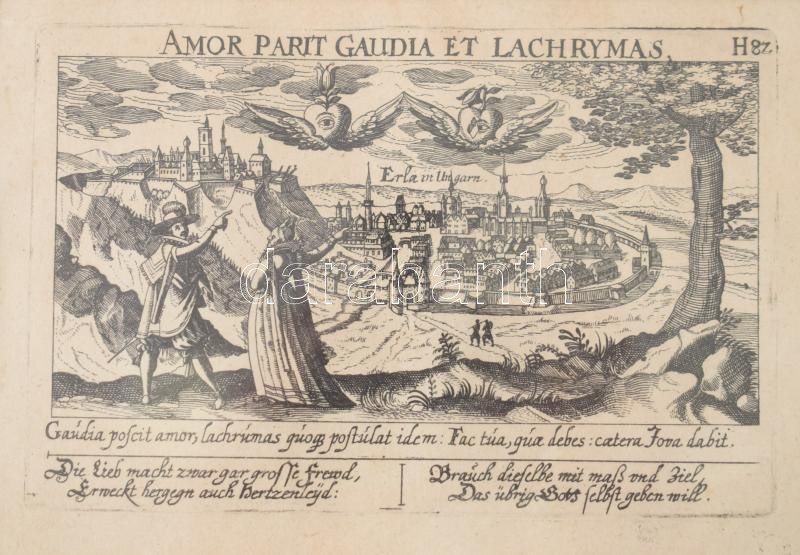 AMOR PARIT GAUDIA ET LACHRYMAS,
H 82.
Erla in Ungarn.
darabanth
Gaudia poscit amor, lachrumas quoqȝ postulat idem: Fac tua, quæ debes: cætera Jova dabit.
Die Lieb macht zwar gar grosse frewd,
Erweckt hergegn auch Hertzenleÿd:
Brauch dieselbe mit maß vnd Ziel,
Das übrig Gott selbst geben will.